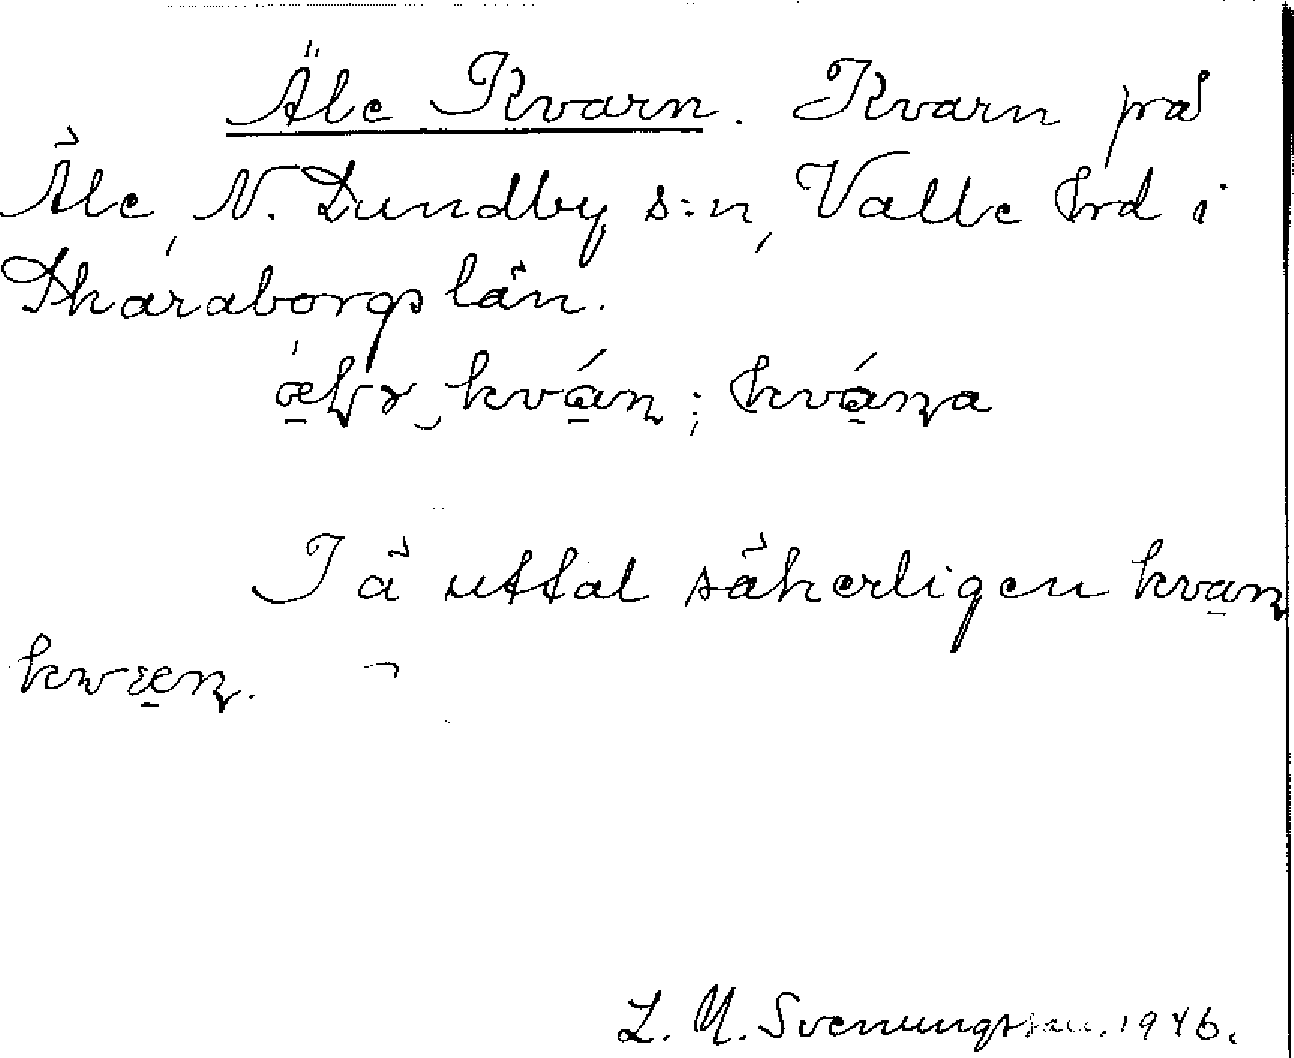 Äle Kvarn. Kvarn på
Äle, N. Lundby s:n, Valle hrd i
Skaraborgs län.
kván; kvána
I ä uttal säkerligen kvan
kwæn.
L. M. Svenungsson. 1946.